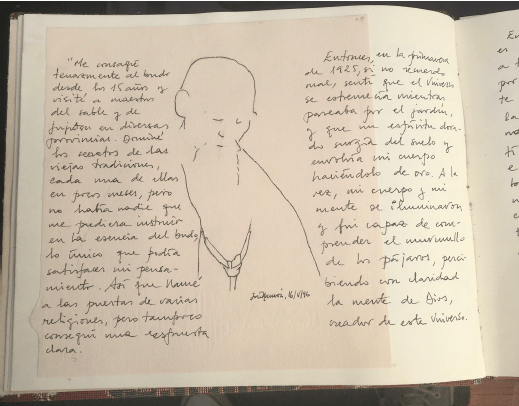 "Me consagré
tenazmente al budo
desde los 15 años y
visité a maestros
del sable y de
jujutsu en diversas
provincias. Dominé
los secretos de las
viejas tradiciones,
cada una de ellas
en pocos meses, pero
no había nadie que
me pudiera instruir
en la esencia del budo,
lo único que podía
satisfacer mi pensa-
miento. Así que llamé
a las puertas de varias
religiones, pero tampoco
conseguí una respuesta
clara.
Entonces, en la primavera
de 1925, si no recuerdo
mal, sentí que el Universo
se estremecía mientras
paseaba por el jardín,
y que un espíritu dora-
do surgía del suelo y
envolvía mi cuerpo
haciéndolo de oro. A la
vez, mi cuerpo y mi
mente se iluminaron
y fui capaz de com-
prender el murmullo
de los pájaros, perci-
biendo con claridad
la mente de Dios,
creador de este Universo.
16/V/96